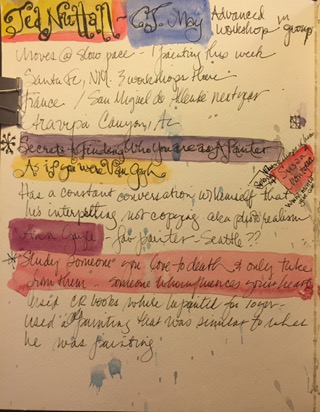 Ted Nuttall - CT. May
Advanced
workshop in
group
Moves @ slow pace - 1 painting this week
Santa Fe, NM. 3 workshops there
France / San Miguel de Allende next year
Aravepa Canyon, Az
Secrets to finding Who you are as A Painter
As if you were Van Gogh
Has a constant conversation w/ himself that
he's interpretting, not copying aka photo realism
Ann - fav painter - Seattle ??
* Study "someone" you love to death & only take
from them - someone who influences your heart.
Used CR books while he painted for 10 years
used a painting that was similar to what
he was painting